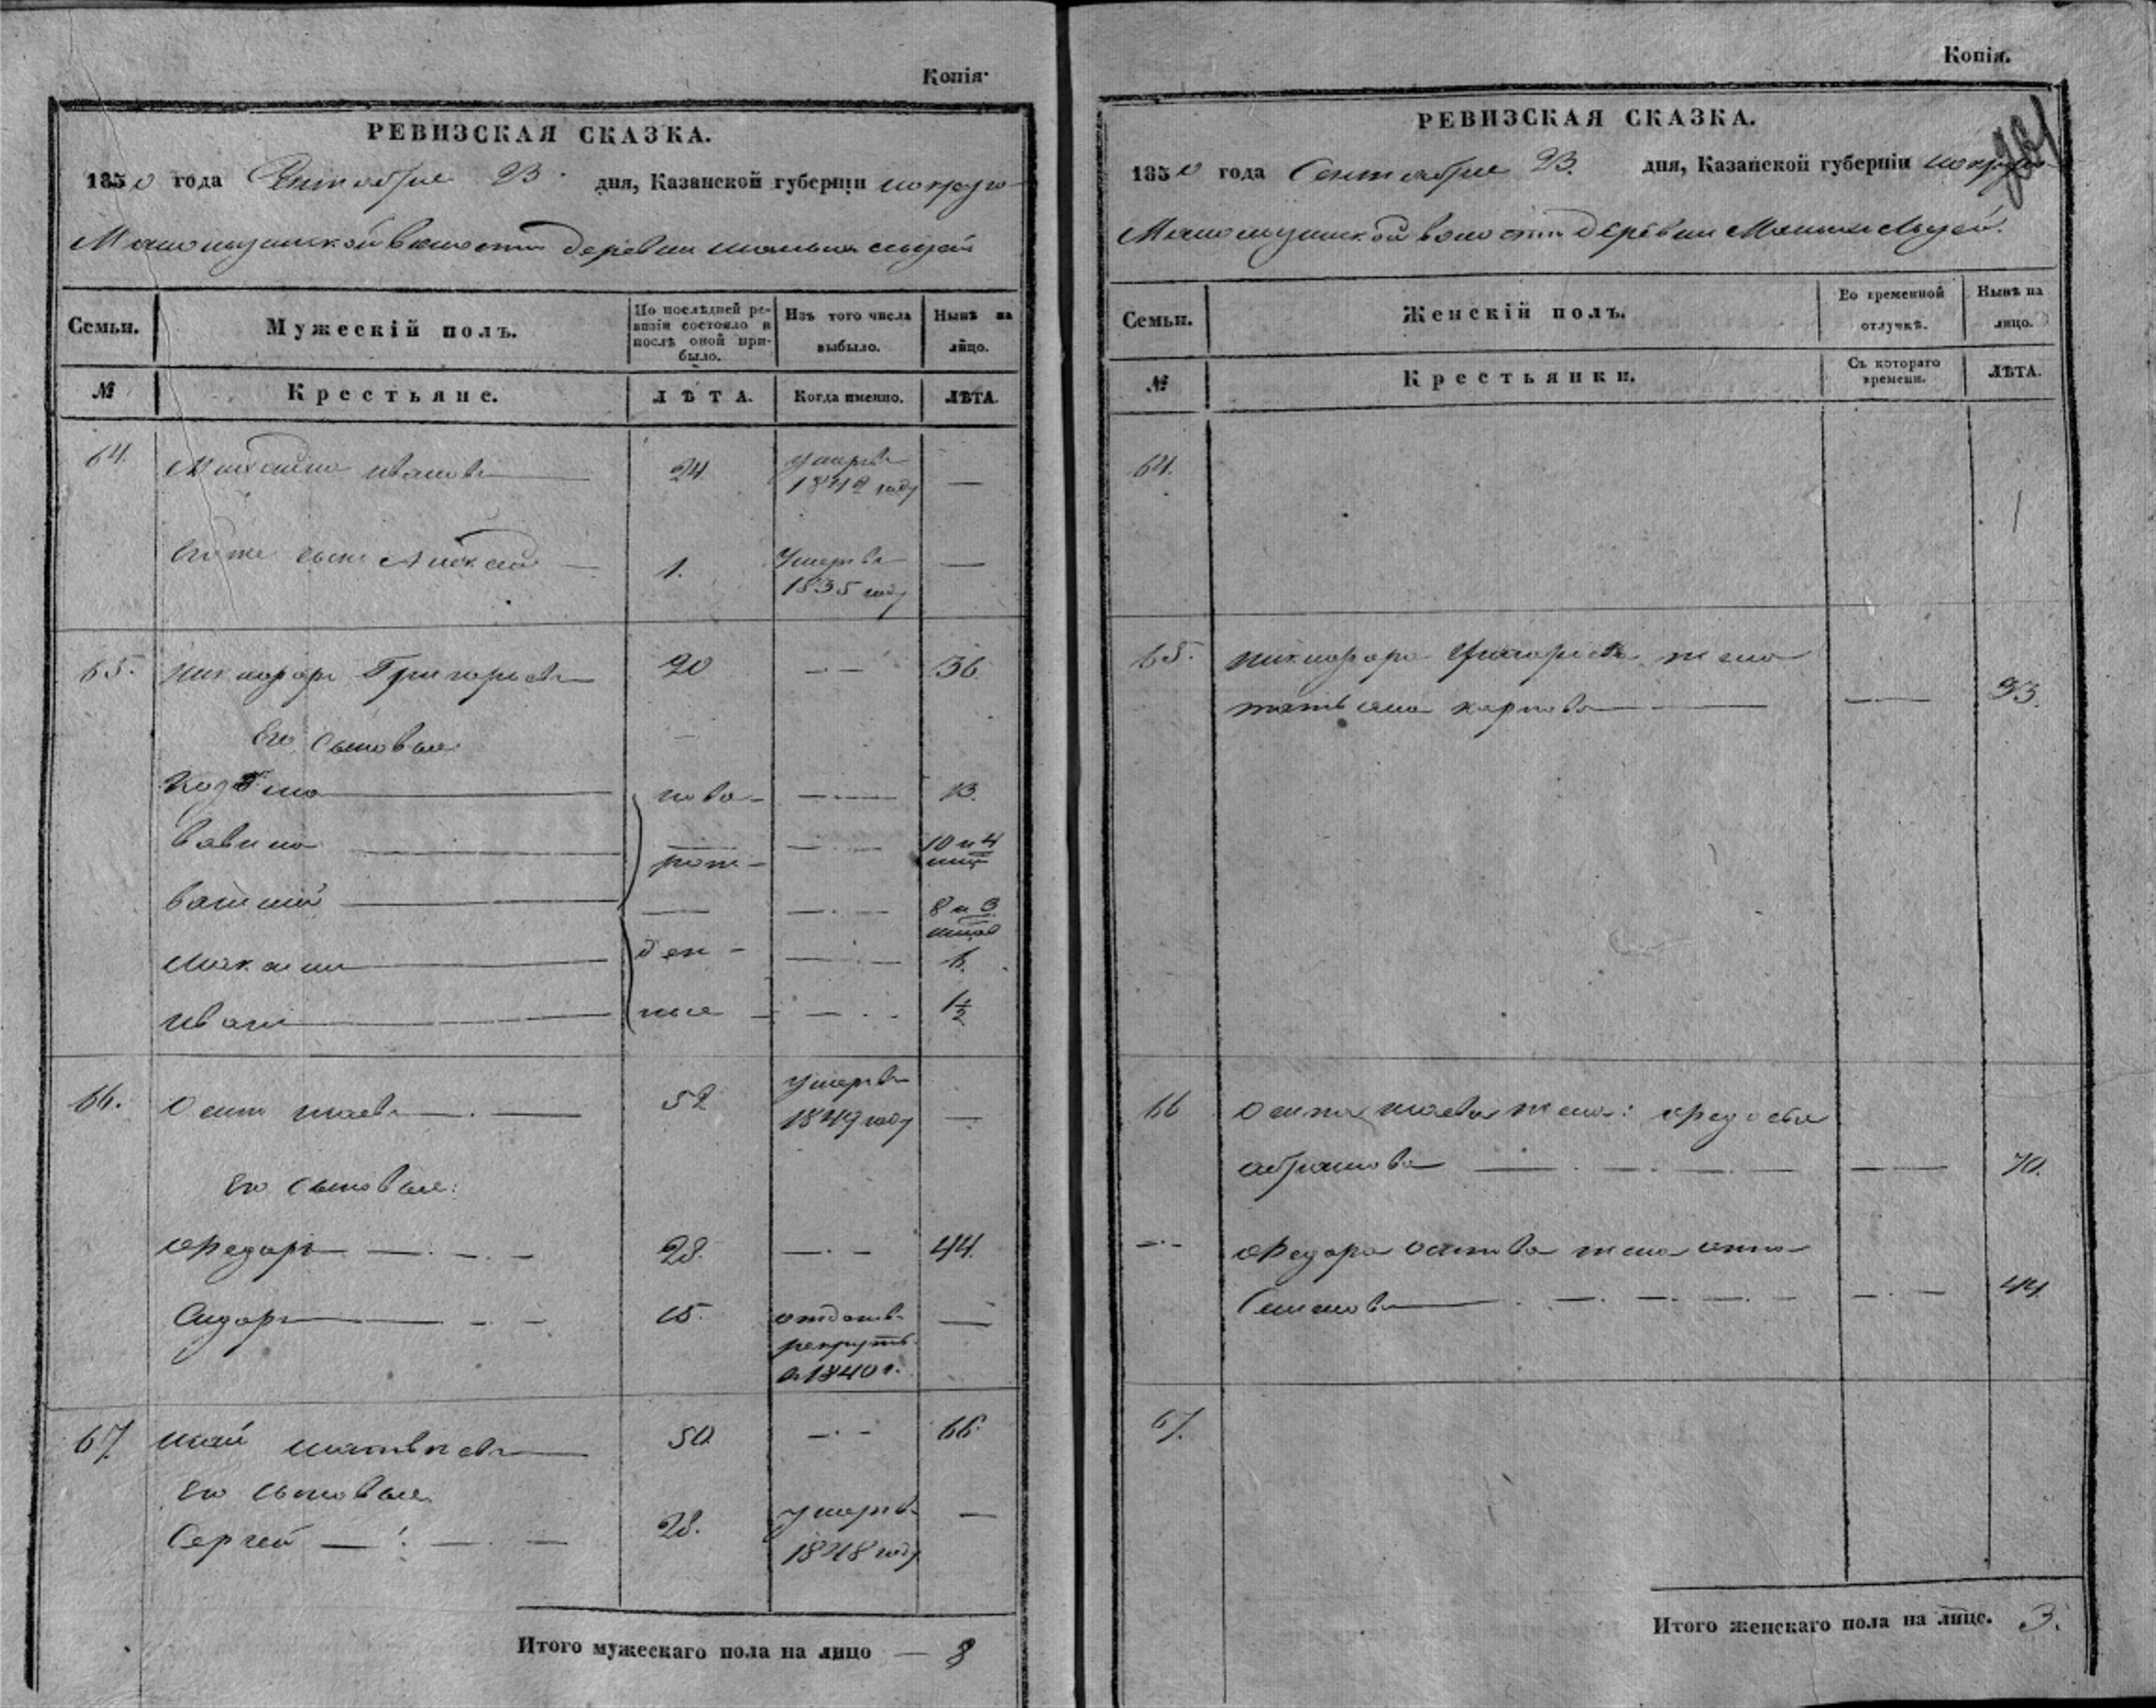 Копія·
РЕВИЗСКАЯ СКАЗКА.
1850 года Сентября 23. дня, Казанской губерніи
волости деревни
Семьи.
Мужескій полъ.
По послѣдней ре-
визіи состояло и
послѣ оной при-
было.
Изъ того числа
выбыло.
Нынѣ на
лицо.
№
Крестьяне.
ЛѢТА.
Когда именно.
ЛѢТА.
64. Ивановъ 24. умеръ —
году
Его же сынъ Алексѣй — 1. Умеръ —
1835 году
65. Никифоръ Григорьевъ 20 — — 36.
Его сыновья
Козьма ново- — — 13.
Вавила рож- — — 10 и 4
мѣс
Василий — — — 8 и 3
мѣся
Максим ден- — — 6.
Иванъ ные — — — 1½
66. Осип 52 умеръ
1849 году —
Его сыновья:
Федоръ — — — 28. — — 44.
Сидоръ — — — 15. отданъ
рекрутъ —
в 1840 г.
67. Матвѣевъ 50. — — 66.
Его сыновья
Сергей — — — 28. умеръ —
1848 году
Итого мужескаго пола на лицо — 8
Копія.
201
РЕВИЗСКАЯ СКАЗКА.
1850 года Сентября 23. дня, Казанской губерніи
волости деревни
Семьи.
Женскій полъ.
Во временной
отлучкѣ.
Нынѣ на
лицо.
№
Крестьянки.
Съ котораго
времени.
ЛѢТА.
64.
65. Никифора Григорьева жена
Татьяна Карпова — — 33.
66 Осипа жена: Федосья
Абрамова — — — — 70.
— Федора Осипова жена Анна
Семенова — — — — 44
67.
Итого женскаго пола на лицо. 3.